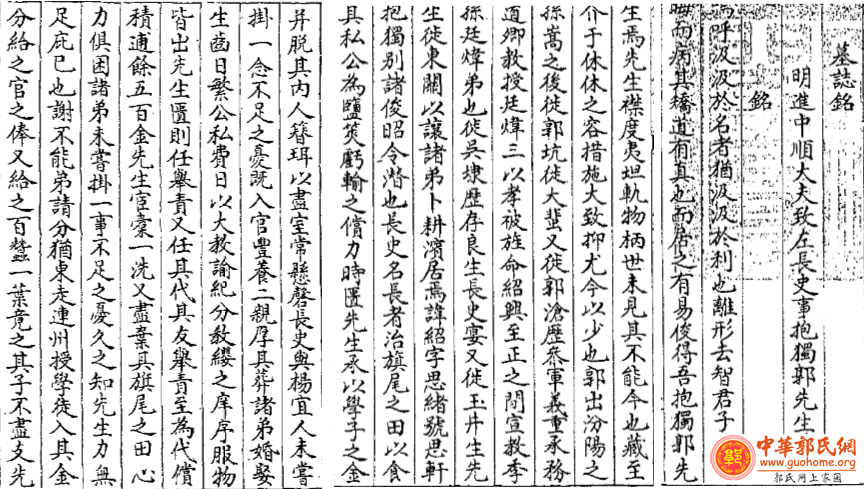 墓誌銘
明進中順大夫致左長史事抱獨郭先生
銘
呼汲汲於名者猶汲汲於利也離形去智君子
而病其矯道有真也而居之有易俊得吾抱獨郭先
生焉先生襟度夷坦軌物柄世未見其不能今也藏至
介于休休之容措施大致抑尤今以少也郭出汾陽之
孫嵩之後徙郭坑徙大蜚又徙郭滄歷參軍義重承務
道卿教授廷煒三以孝被旌命紹興至正之間宣教季
孫廷煒弟也徙吳埭歷存良生長史宴又徙玉井生先
生徙東關以讓諸弟卜耕濱居焉諱紹字思緒號思軒
抱獨別諸俊昭令潛也長史名長者治旗尾之田以食
其私公為鹽筴虧輸之償力時匱先生承以學子之金
并脫其內人簪珥以盡室常懸磬長史與楊宜人未嘗
掛一念不足之憂既入官豐養二親厚其葬諸弟婚娶
生齒日繁公私費日以大教諭紀分敎纓之庠序服物
皆出先生匱則任舉責又任其代其友舉責至為代償
積逋餘五百金先生宦橐一洗又盡棄其旗尾之田心
力俱困諸弟未嘗掛一事不足之憂久之知先生力無
足庇已也謝不能弟請分猶東走連州授學徒入其金
分給之官之俸又給之百蜚一葉竟之其子不盡支先
中華郭氏網
www.guohome.org
郭氏网上家園